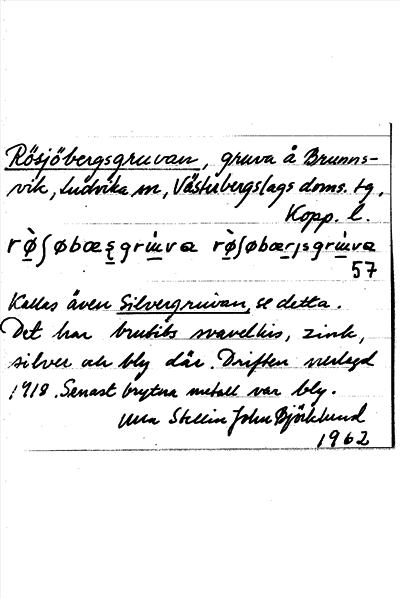 Rösjöbergsgruvan, gruva å Brunns-
vik, Ludvika sn, Västerbergslags doms. tg,
Kopp. l.
57
Kallas även Silvergruvan, se detta.
Det har brutits svavelkis, zink,
silver och bly där. Driften nerlagd
1918. Senast brytna metall var bly.
John Björklund
1962